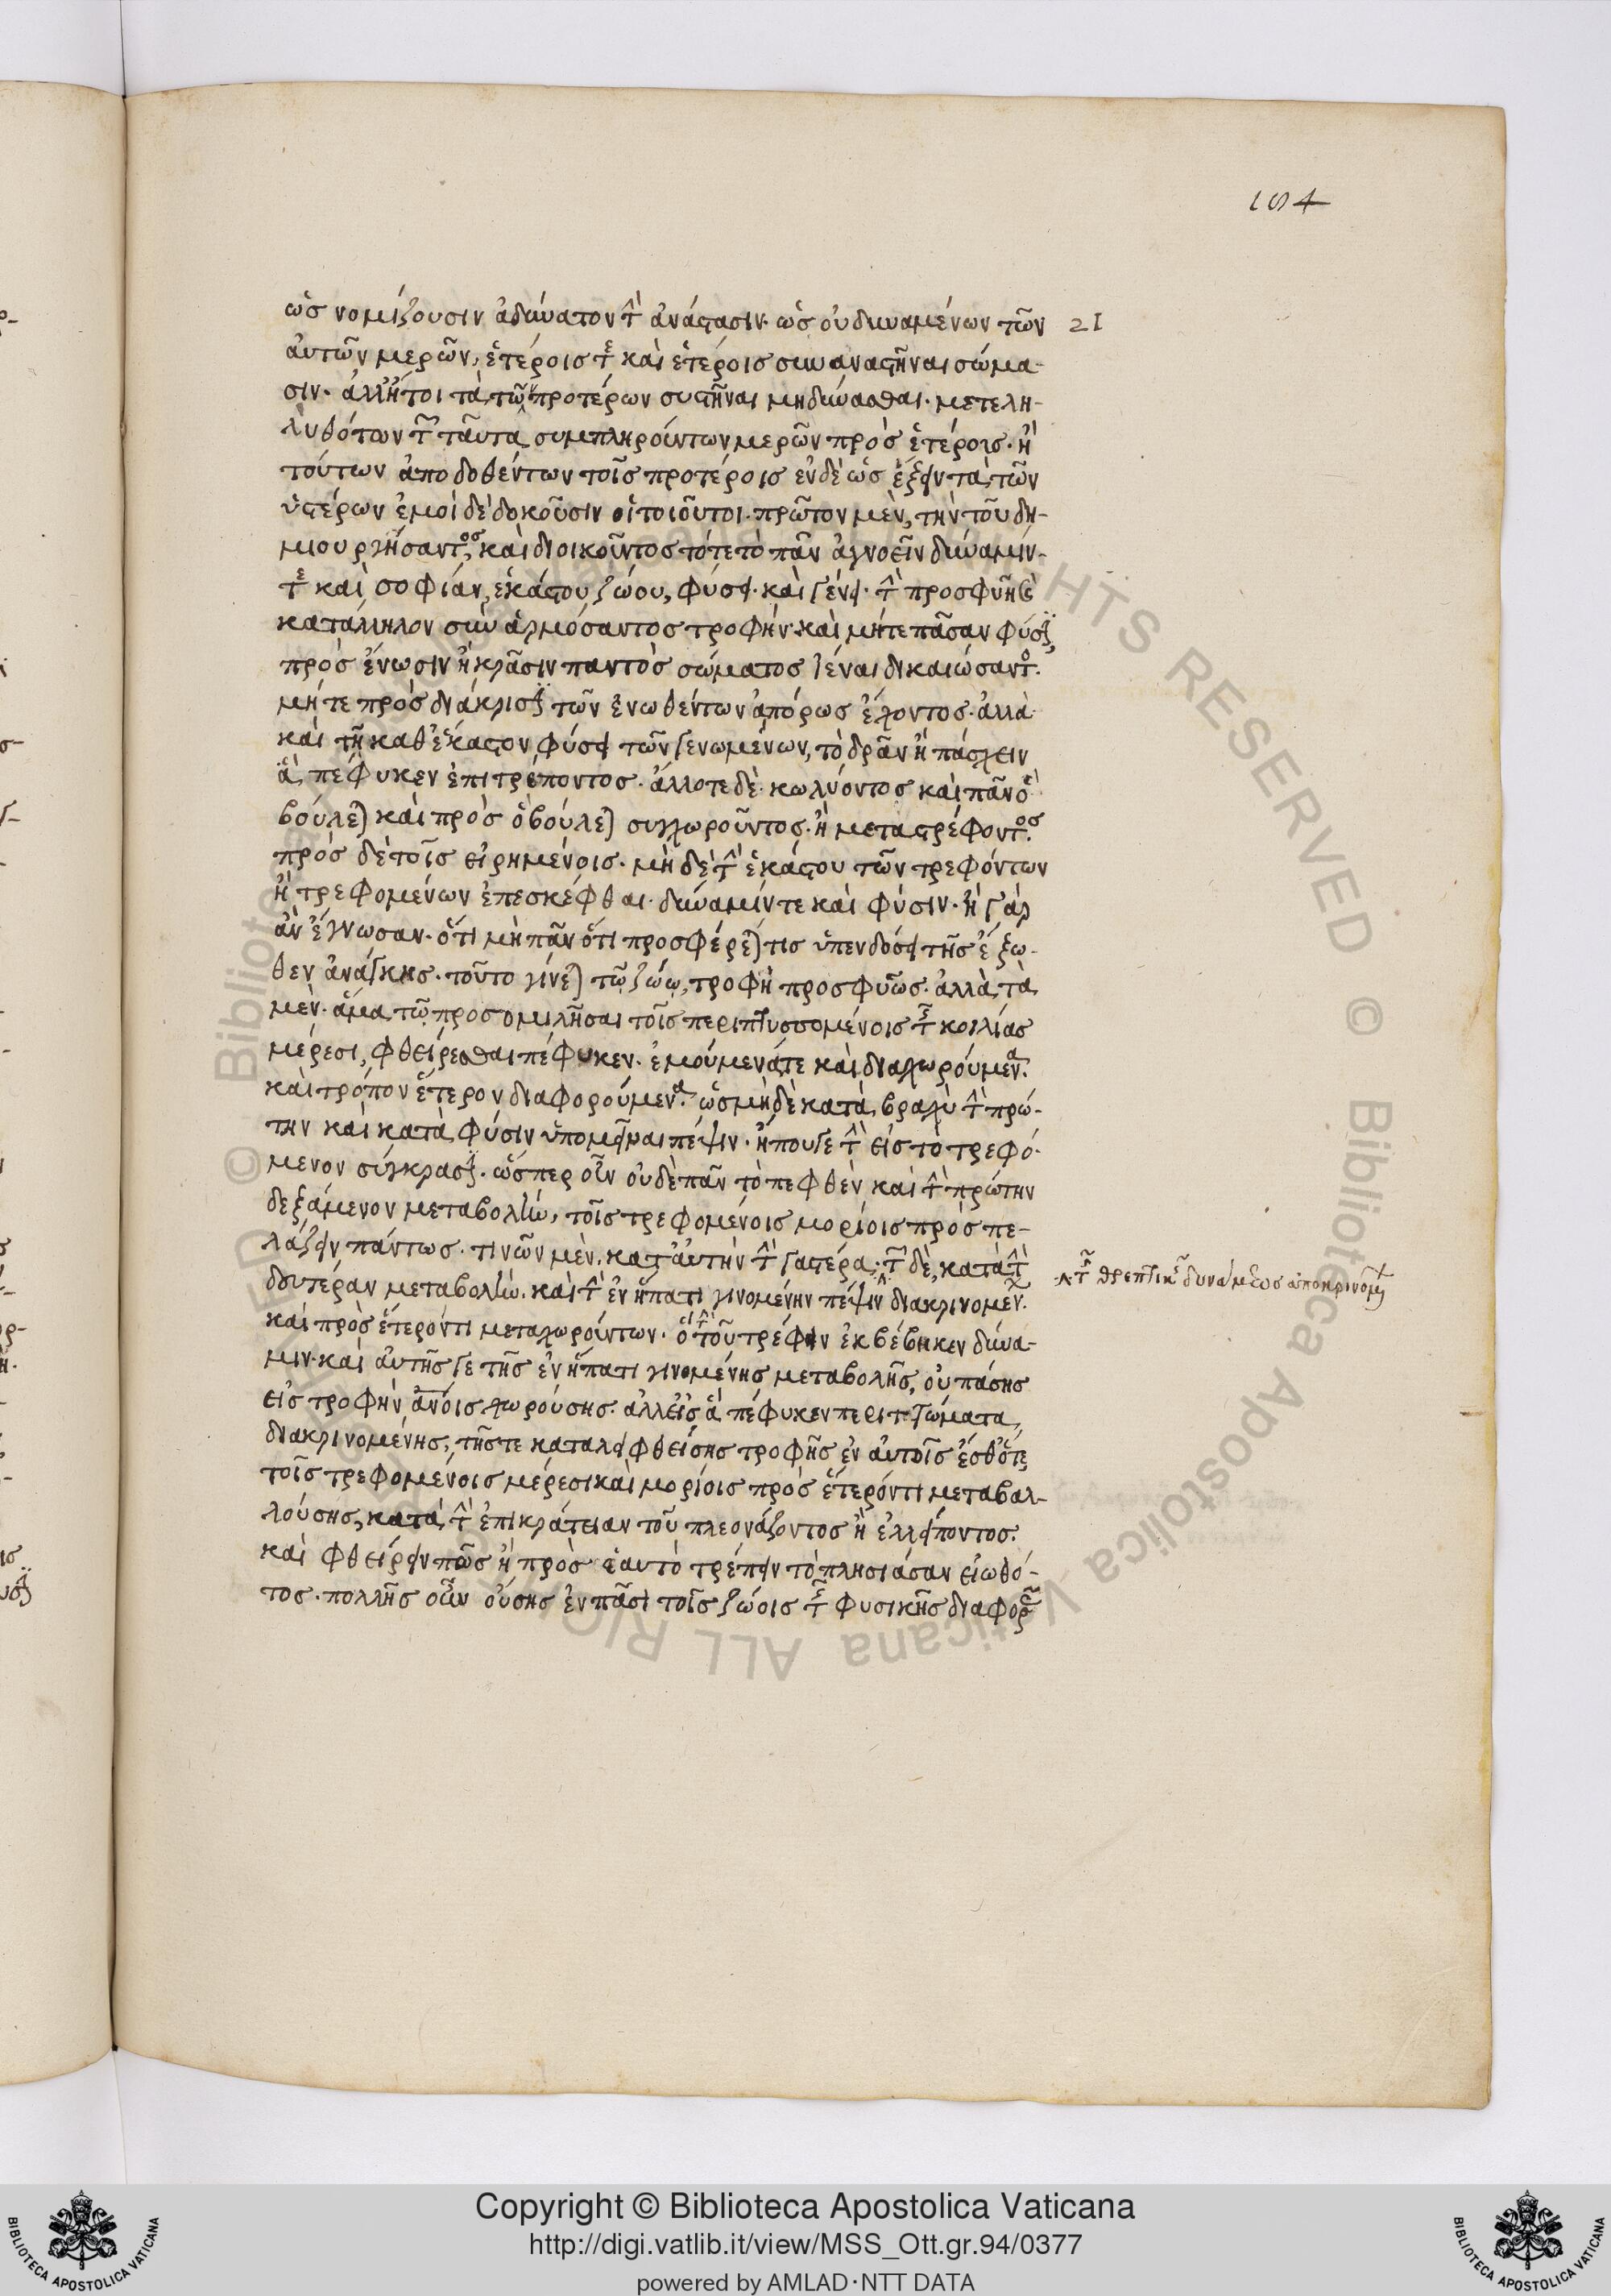 184
ὡς νομίζουσιν ἀδύνατον τὴν ἀνάστασιν· ὡς οὐ δυναμένων τῶν 21
αὐτῶν μερῶν, ἑτέροις τε καὶ ἑτέροις συναναστῆναι σώμα-
σιν· ἀλλ' ἤτοι τὰ τῶν προτέρων συστῆναι μὴ δύνασθαι· μετελη-
λυθότων τῶν ταῦτα συμπληρούντων μερῶν πρὸς ἑτέροις· ἢ
τούτων ἀποδοθέντων τοῖς προτέροις ἐνδεῶς ἕξειν τὰ τῶν
ὑστέρων ἐμοὶ δὲ δοκοῦσιν οἱ τοιοῦτοι· πρῶτον μὲν, τὴν τοῦ δη-
μιουργήσαντος, καὶ διοικοῦντος τό τε τὸ πᾶν ἀγνοεῖν δύναμίν
τε καὶ σοφίαν, ἑκάστου ζώου, φύσει· καὶ γένει· τὴν προσφυῆ καὶ
κατάλληλον συναρμόσαντος τροφήν· καὶ μήτε πᾶσαν φύσιν,
πρὸς ἕνωσιν ἢ κρᾶσιν παντὸς σώματος ἰέναι δικαιώσαντος.
μήτε πρὸς διάκρισιν τῶν ἑνωθέντων ἀπόρως ἔχοντος· ἀλλὰ
καὶ τῇ καθ' ἕκαστον φύσει τῶν γενωμένων, τὸ δρᾶν ἢ πάσχειν
ἃ, πέφυκεν ἐπιτρέποντος· ἄλλοτε δὲ κωλύοντος καὶ πᾶν ὃ
βούλεται καὶ πρὸς ὃ βούλεται συγχωροῦντος· ἢ μεταστρέφοντος.
πρὸς δὲ τοῖς εἰρημένοις· μὴ δὲ τὴν ἑκάστου τῶν τρεφόντων
ἢ τρεφομένων ἐπεσκέφθαι· δύναμίν τε καὶ φύσιν· ἢ γὰρ
ἂν ἔγνωσαν· ὅτι μὴ πᾶν ὅτι προσφέρεταί τις ὑπενδόσει τῆς ἔξω-
θεν ἀνάγκης· τοῦτο γίνεται τῷ ζώῳ, τροφὴ προσφυῶς· ἀλλὰ τὰ
μὲν· ἅμα τῷ προσομιλῆσαι τοῖς περιπτυσσομένοις τῆς κοιλίας
μέρεσι, φθείρεσθαι πέφυκεν· ἐμούμενά τε καὶ διαχωρούμενα.
καὶ τρόπον ἕτερον διαφορούμενα· ὡς μὴ δὲ κατὰ βραχὺ τὴν πρώ-
την καὶ κατὰ φύσιν ὑπομεῖναι πέψιν· ἤπου γε τὴν εἰς τὸ τρεφό-
μενον σύγκρασιν· ὥσπερ οὖν οὐδὲ πᾶν τὸ πεφθὲν καὶ τὴν πρώτην
δεξάμενον μεταβολὴν, τοῖς τρεφομένοις μορίοις προσπε-
λάζειν πάντως· τινῶν μὲν, κατ' αὐτὴν τὴν γαστέρα· τῶν δὲ, κατὰ τὴν
δευτέραν μεταβολὴν· καὶ τὴν ἐν ἥπατι γινομένην πέψιν διακρινομένων· τῆς θρεπτικῆς δυνάμεως ἀποκρινομένων
καὶ πρὸς ἕτερόν τι μεταχωρούντων· ὃ τὴν τοῦ τρέφειν ἐκβέβηκεν δύνα-
μιν· καὶ αὐτῆς γε τῆς ἐν ἥπατι γινομένης μεταβολῆς, οὐ πάσης
εἰς τροφὴν ἀνοις χωρούσης· ἀλλ' εἰς ἃ πέφυκεν περιττώματα,
διακρινομένης, τῆς τε καταλειφθείσης τροφῆς ἐν αὐτοῖς ἔσθ' ὅτε
τοῖς τρεφομένοις μέρεσι καὶ μορίοις πρὸς ἕτερόν τι μεταβαλ-
λούσης, κατὰ τὴν ἐπικράτειαν τοῦ πλεονάζοντος ἢ ἐλλείποντος.
καὶ φθείρειν πῶς ἢ πρὸς ἑαυτὸ τρέπειν τὸ πλησιάσαν εἰωθό-
τος· πολλῆς οὖν οὔσης ἐν πᾶσι τοῖς ζώοις τῆς φυσικῆς διαφορᾶς
© Biblioteca Apostolica Vaticana ALL RIGHTS RESERVED
Copyright © Biblioteca Apostolica Vaticana
http://digi.vatlib.it/view/MSS_Ott.gr.94/0377
powered by AMLAD·NTT DATA
BIBLIOTECA APOSTOLICA VATICANA
BIBLIOTECA APOSTOLICA VATICANA